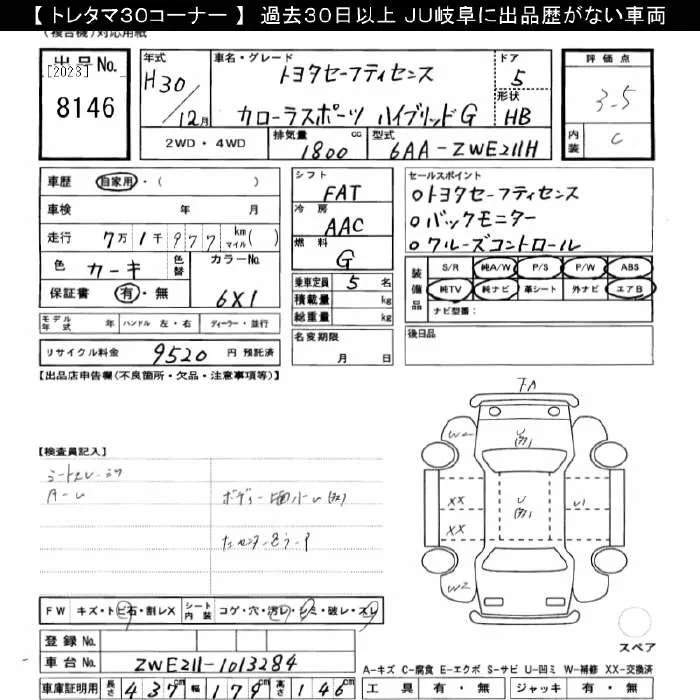 【 トレタマ30コーナー 】 過去30日以上 JU岐阜に出品歴がない車両
(複合機)対応用紙
出品No.
[2023]
8146
年式
H30/12月
車名・グレード
トヨタセーフティセンス
カローラスポーツ ハイブリッドG
ドア
5
形状
HB
評価点
3.5
内装
C
2WD・4WD
排気量
1800
cc
型式
6AA-ZWE211H
車歴 自家用・( )
車検 年 月
走行 7万1千977 km マイル( )
色 カーキ
色替
カラーNo.
6X1
保証書 有・無
モデル年式 年 ハンドル 左・右 ディーラー・並行
リサイクル料金 9520 円 預託済
シフト
FAT
冷房
AAC
燃料
G
乗車定員 5 名
積載量 kg
総重量 kg
名変期限
月 日
セールスポイント
○トヨタセーフティセンス
○バックモニター
○クルーズコントロール
装備品
S/R 純A/W P/S P/W ABS
純TV 純ナビ 革シート 外ナビ エアB
ナビ型番:
後日品
【出品店申告欄(不良箇所・欠品・注意事項等)】
【検査員記入】
FW キズ・トビ石・割レX シート内装 コゲ・穴・汚レ・シミ・破レ・スレ
登録No.
車台No. ZWE211-1013284
車庫証明用 長さ 437cm 幅 179cm 高さ 146cm
W2
U
XX
U
U1
XX
W2
スペア
A-キズ C-腐食 E-エクボ S-サビ U-凹ミ W-補修 XX-交換済
工具 有・無 ジャッキ 有・無